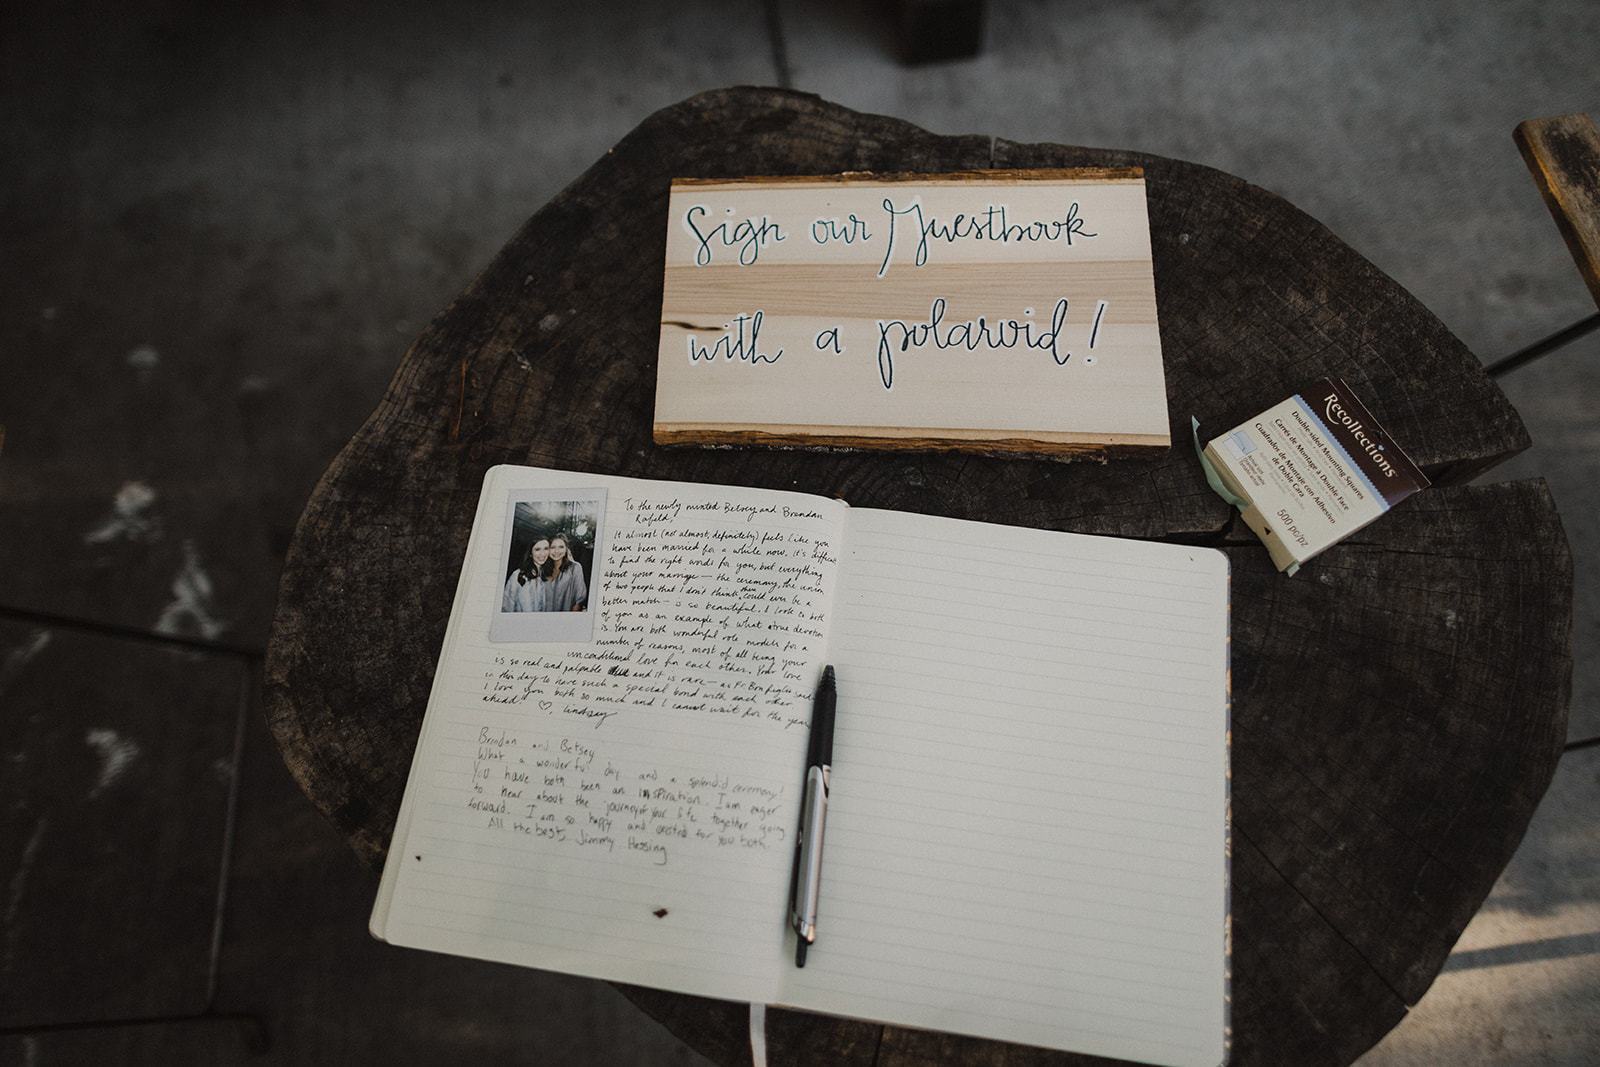 Sign our Guestbook
with a polaroid!
Recollections
Double-sided Mounting Squares
Carrés de Montage à Double Face
Cuadrados de Montaje con Adhesivo
de Doble Cara
500 pc/pz
To the newly minted Betsey and Brendan
It almost (not almost, definitely) feels like you
have been married for a while now. It's difficult
to find the right words for you, but everything
about your marriage — the ceremony, the union
of two people that I don't think there could ever be a
better match — is so beautiful. I look to both
of you as an example of what true devotion
is. You are both wonderful role models for a
number of reasons, most of all being your
unconditional love for each other. Your love
is so real and palpable and it is rare — as Fr. Bonfiglio said
in this day to have such a special bond with each other.
I love you both so much and I cannot wait for the years
ahead! ♡, Lindsay
Brendan and Betsey
What a wonderful day and a splendid ceremony!
You have both been an inspiration. I am eager
to hear about the journey of your life together going
forward. I am so happy and excited for you both.
All the best, Jimmy Hessing